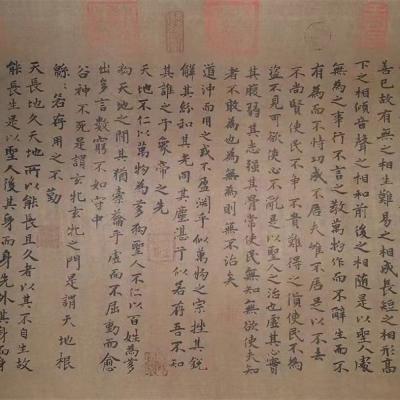 善已故有無之相生難易之相成長短之相形高
下之相傾音聲之相和前後之相隨是以聖人處
無為之事行不言之教萬物作而不辭生而不
有為而不恃功成不居夫惟不居是以不去
不尚賢使民不争不貴難得之貨使民不為
盜不見可欲使心不亂是以聖人之治也虛其心實
其腹弱其志强其骨常使民無知無欲使夫知
者不敢為也為無為則無不治矣
道沖而用之或不盈淵乎似萬物之宗挫其銳
解其紛和其光同其塵湛乎似若存吾不知
其誰之子象帝之先
天地不仁以萬物為芻狗聖人不仁以百姓為芻
狗天地之間其猶橐籥乎虛而不屈動而愈
出多言數窮不如守中
谷神不死是謂玄牝玄牝之門是謂天地根
緜〻若存用之不勤
天長地久天地所以能長且久者以其不自生故
能長生是以聖人後其身而身先外其身而身